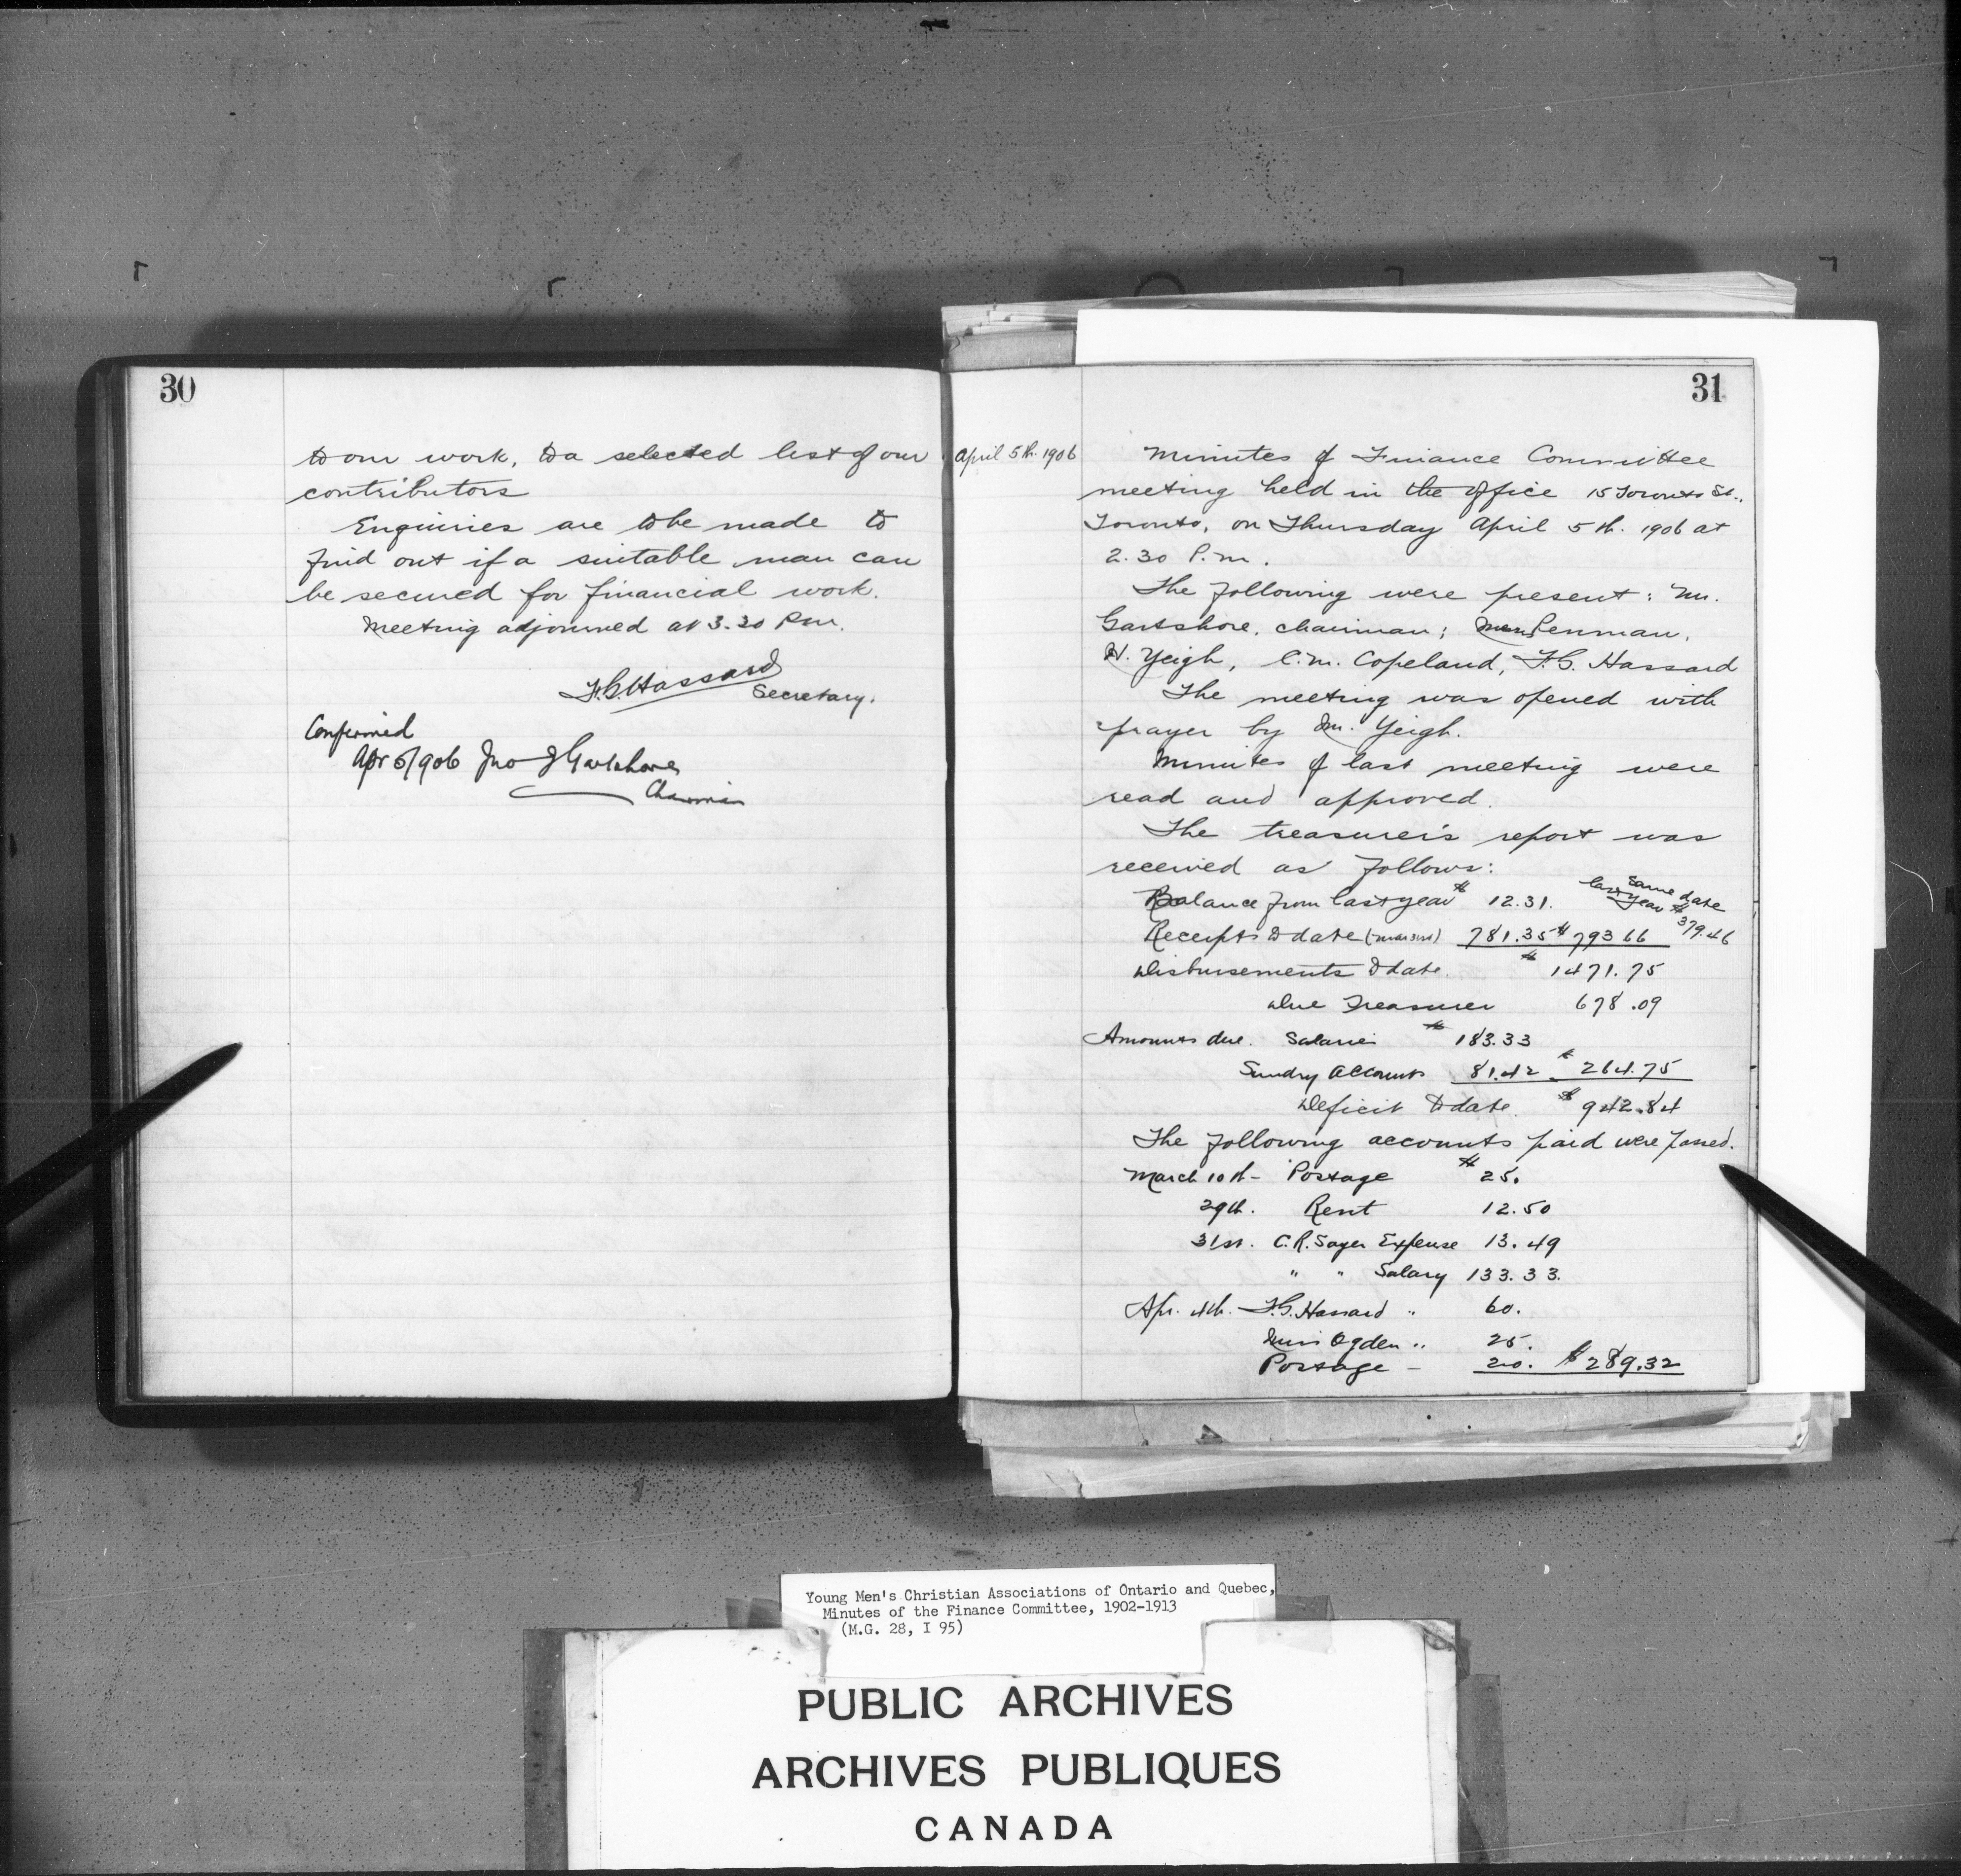 30
to our work, to a selected list of our
contributors
Enquiries are to be made to
find out if a suitable man can
be secured for financial work.
Meeting adjourned at 3.30 P.m.
F.G. Hassard
Secretary.
Confirmed
Apr 5/906 Jno J Gartshore
Chairman
31
April 5th. 1906
Minutes of Finance Committee
meeting held in the office 15 Toronto St.,
Toronto, on Thursday April 5th. 1906 at
2.30 P.m.
The following were present: Mr.
Gartshore, chairman; Penman,
H. Yeigh, C.M. Copeland, F.G. Hassard
The meeting was opened with
prayer by Mr. Yeigh.
Minutes of last meeting were
read and approved.
The treasurer's report was
received as follows:
same date
last year $
Balance from last year $ 12.31.
379.46
Receipts to date (Mar 31st) 781.35 $ 793 66
Disbursements to date. $ 1471.75
Due Treasurer 678.09
Amounts due. Salaries $ 183.33
Sundry Accounts 81.42 $ 264.75
Deficit to date. $ 942.84
The following accounts paid were passed.
March 10th - Postage $ 25.
29th. Rent 12.50
31st. C.R. Sayer Expense 13.49
" " Salary 133.33.
Apr. 4th. F.G. Hassard " 60.
Miss Ogden " 25.
Postage - 20. $ 289.32
Young Men's Christian Associations of Ontario and Quebec,
Minutes of the Finance Committee, 1902-1913
(M.G. 28, I 95)
PUBLIC ARCHIVES
ARCHIVES PUBLIQUES
CANADA